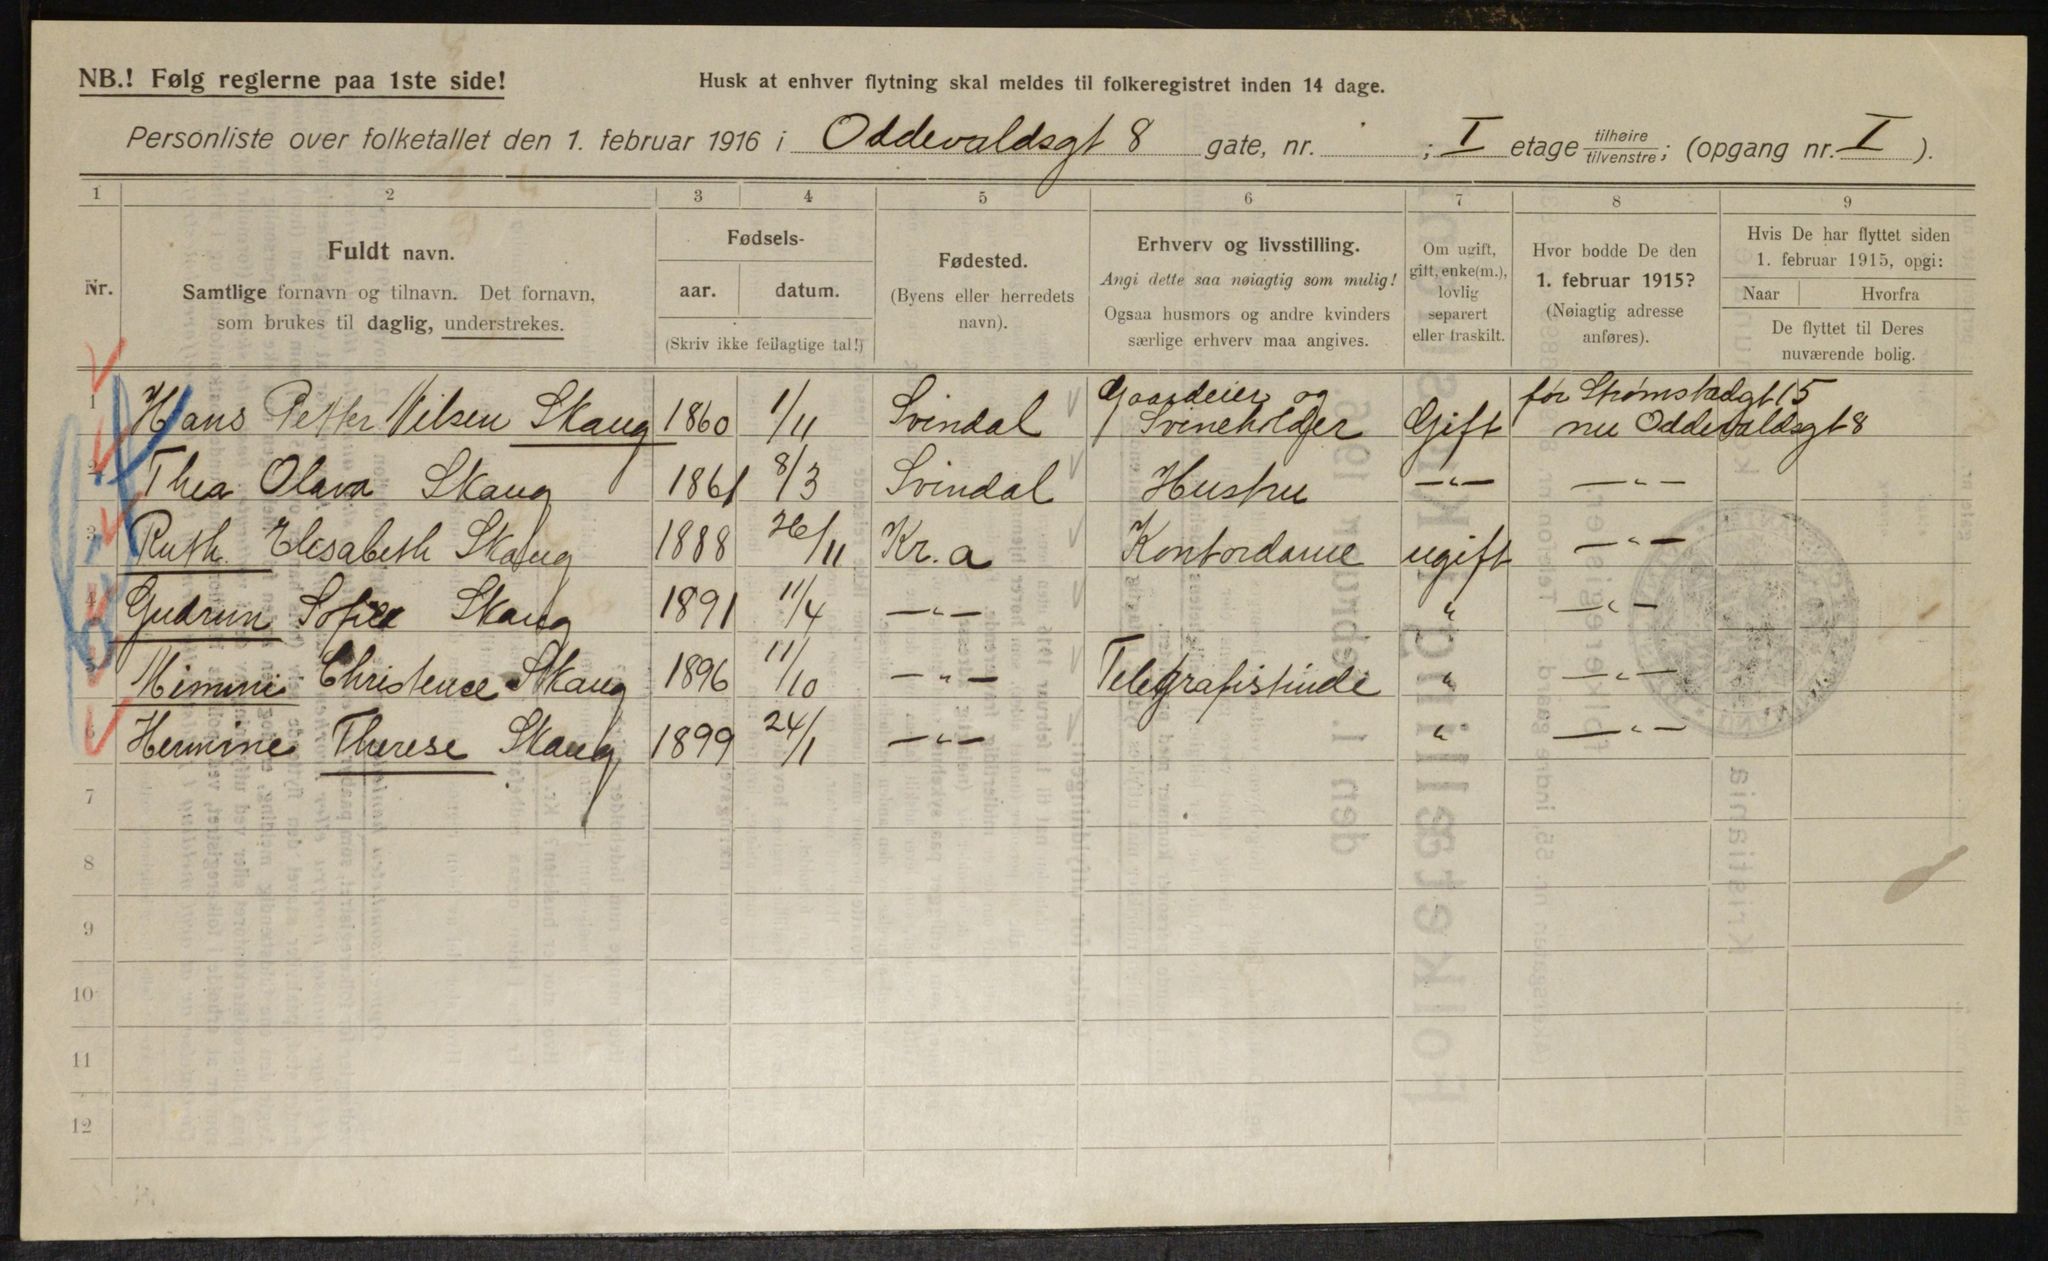 NB.! Følg reglerne paa 1ste side!
Husk at enhver flytning skal meldes til folkeregistret inden 14 dage.
Personliste over folketallet den 1. februar 1916 i Oddevaldsgt 8 gate, nr. ; I etage tilhøire/tilvenstre; (opgang nr. I ).
1 2 3 4 5 6 7 8 9
Nr.
Fuldt navn.
Samtlige fornavn og tilnavn. Det fornavn,
som brukes til daglig, understrekes.
Fødsels-
aar. datum.
(Skriv ikke feilagtige tal!)
Fødested.
(Byens eller herredets
navn).
Erhverv og livsstilling.
Angi dette saa nøiagtig som mulig!
Ogsaa husmors og andre kvinders
særlige erhverv maa angives.
Om ugift,
gift, enke(m.),
lovlig
separert
eller fraskilt.
Hvor bodde De den
1. februar 1915?
(Nøiagtig adresse
anføres).
Hvis De har flyttet siden
1. februar 1915, opgi:
Naar Hvorfra
De flyttet til Deres
nuværende bolig.
1 Hans Petter Nilsen Skaug 1860 1/11 Svindal Gaardeier og Svineholder Gift før Strømstadgt 15 nu Oddevaldsgt 8
2 Thea Olava Skaug 1861 8/3 Svindal Hustru —"— —"—
3 Ruth Elisabeth Skaug 1888 26/11 Kr.a Kontordame ugift —"—
4 Gudrun Sofie Skaug 1891 11/4 —"— " —"—
5 Mimmi Christence Skaug 1896 11/10 —"— Telegrafistinde " —"—
6 Hermine Therese Skaug 1899 24/1 —"— " —"—
7
8
9
10
11
12